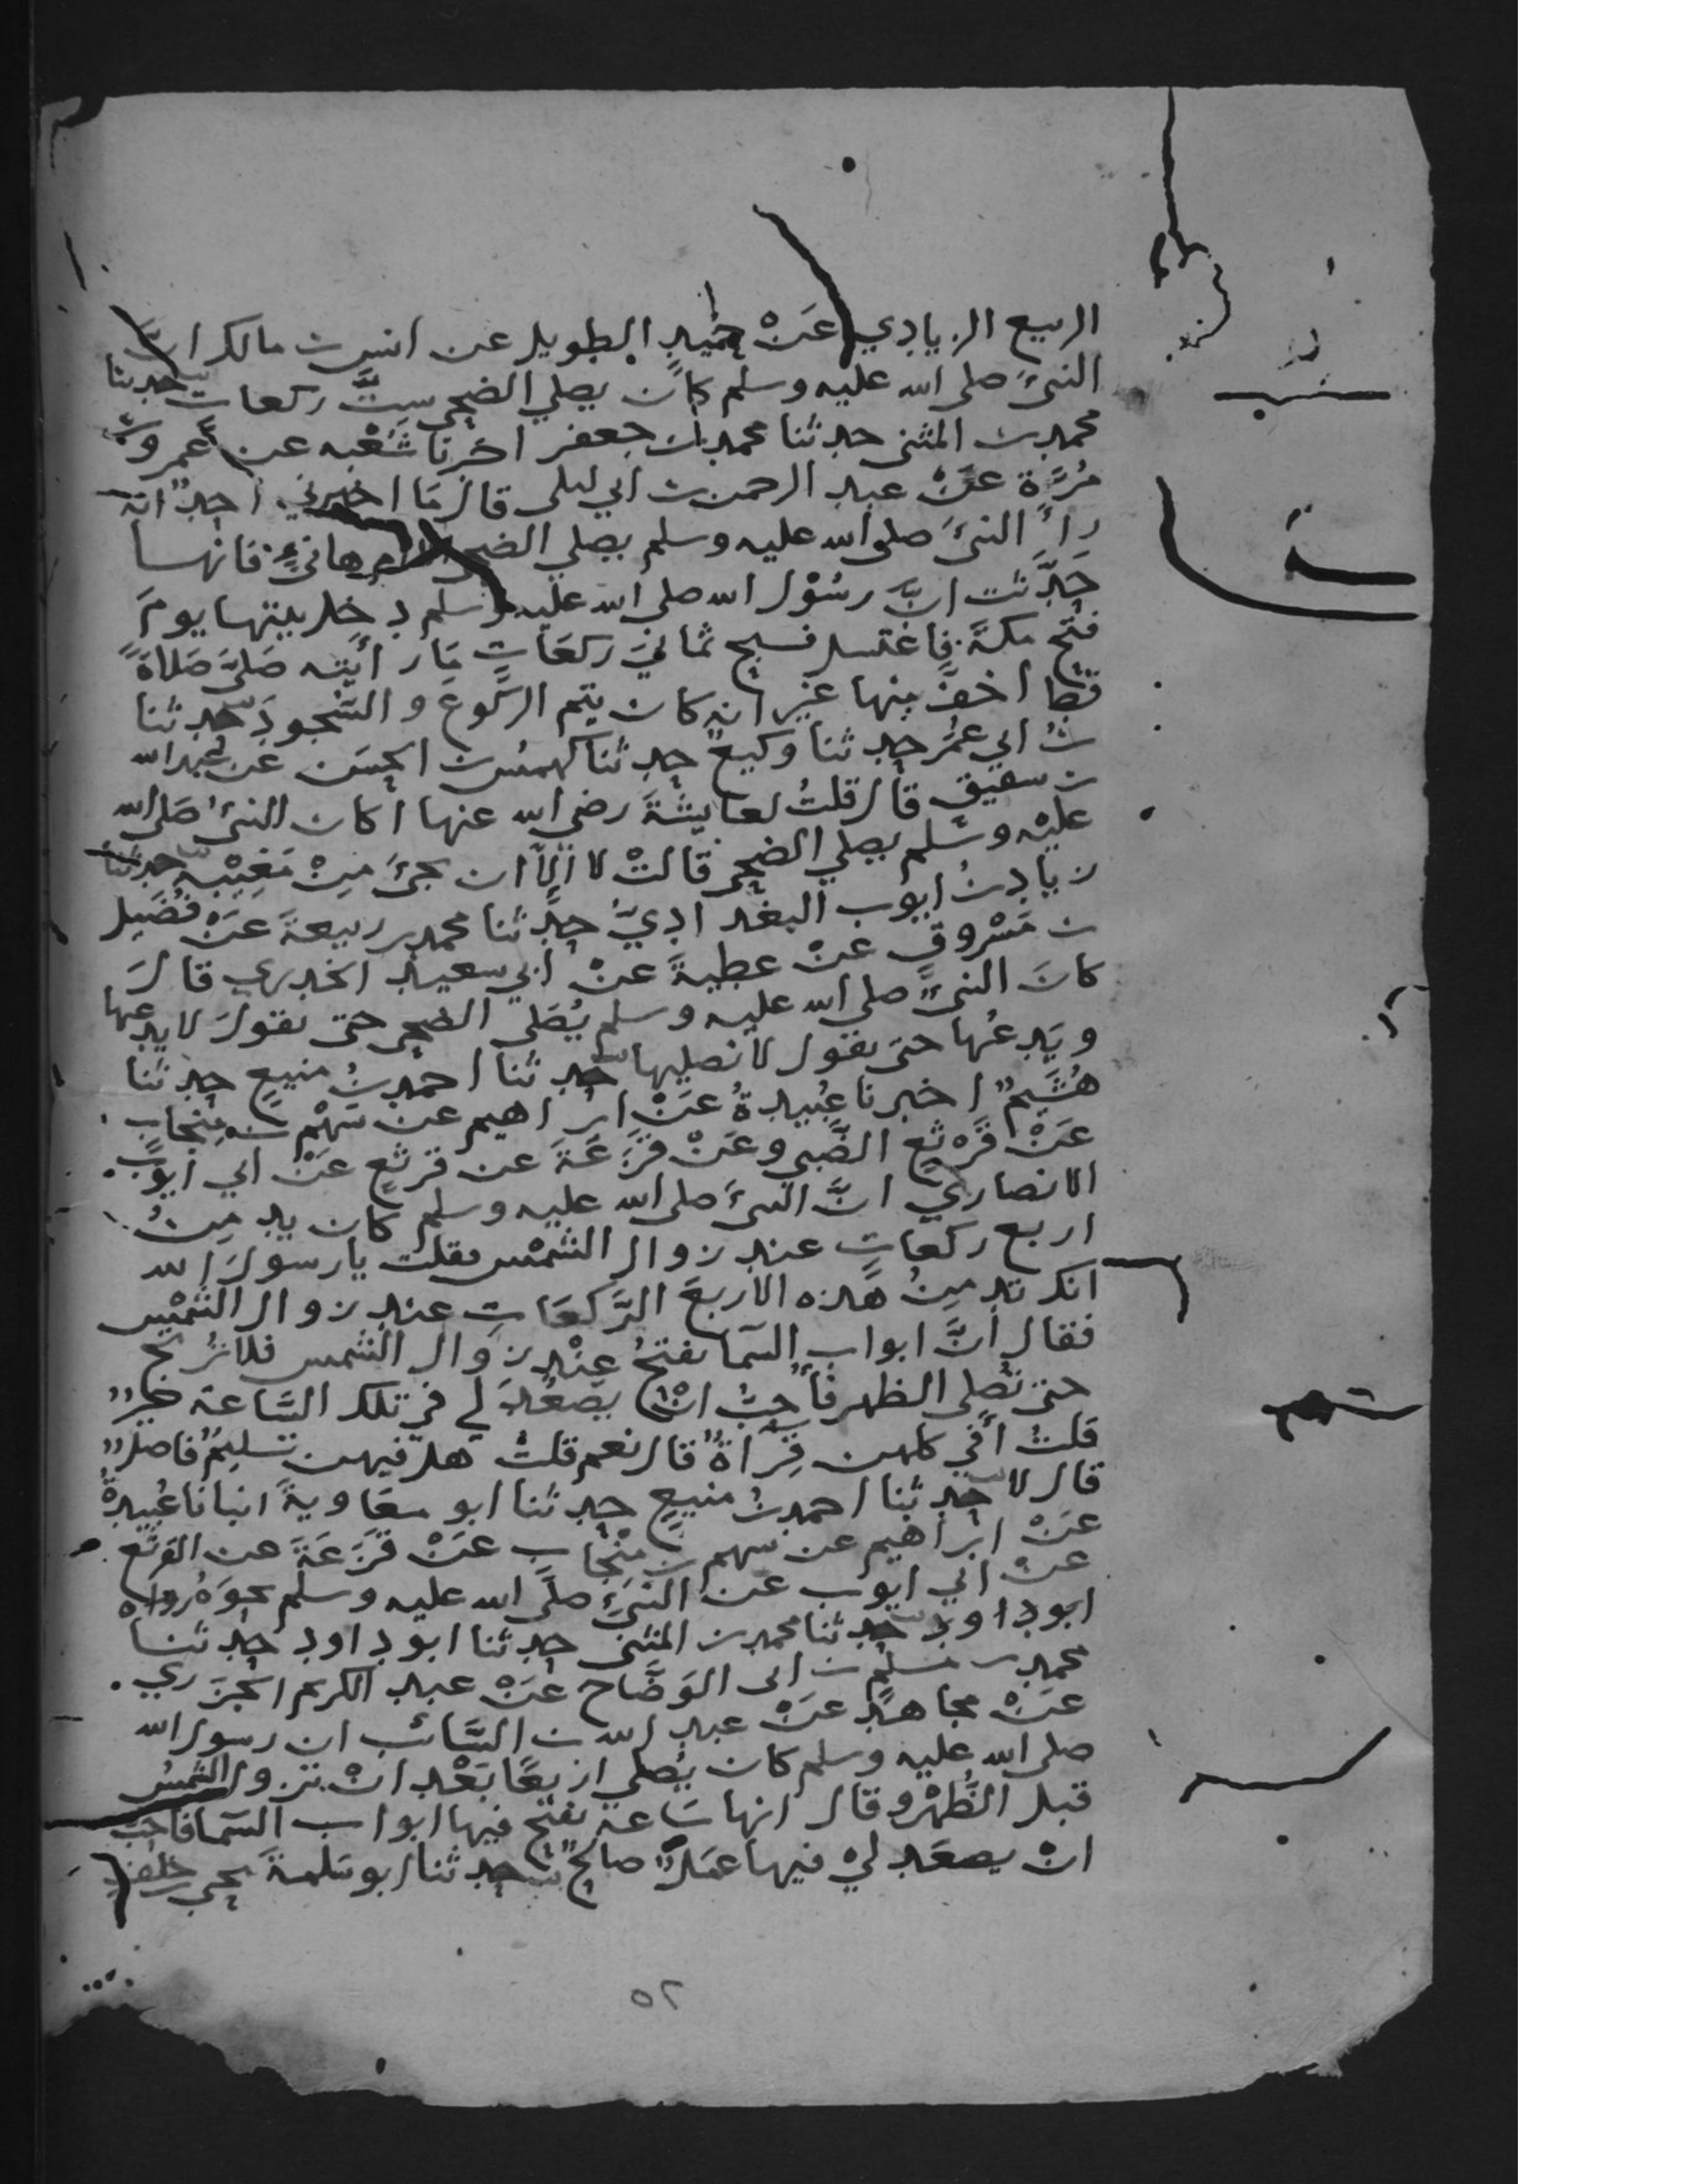 الربيع الزيادي عَنْ حميدٍ الطويل عن انس بن مالك انَّ
النبيَّ صلى الله عليه وسلم كان يصلي الضحى ستَّ ركعات حدثنا
محمد بن المثنى حدثنا محمد بن جعفر اخبرنا شعبه عن عمرو بن
مُرَّة عَنْ عبد الرحمن بن ابي ليلى قال مَا اخبرني احدٌ انه
راَ النبيَّ صلى الله عليه وسلم يصلي الضحى الا ام هانئٍ فانها
حَدَّثت انَّ رسُوْل الله صلى الله عليه وسلم دخل بيتها يومَ
فتح مكةَ فاغتسل فسبح ثماني ركعَاتٍ مَا رأيته صَلىَّ صَلاةً
قط اخفَّ منها غير انه كان يتم الركوعَ و السُّجودَ حدثنا
بنُ ابي عمُر حدثنا وكيعٌ حدثنا كهمسُ بن الحسَن عن عبد الله
بن سقيق قال قلتُ لعايشةَ رضي الله عنها اكان النبيُ صَلى الله
عليْه وسَلم يصلي الضحى قالتْ لا الَّا ان يجيَ مِنْ مَغِيْبِه حدثنا
زياد بنُ ايوب البغدادِيَّ حدَّثنا محمد بن ربيعةَ عَنْ فضَيل
بن مَسْروقٍ عنْ عطيةَ عنْ ابي سعيدٍ الخدري قالَ
كانَ النبيُّ صلى الله عليه وسلم يُصَلي الضحى حتى نقولَ لا يدعها
ويَدعُها حتى نقول لا نصليها حدثنا احمد بنُ منيعٍ حدثنا
هُشَيمٌ اخبرنا عُبيدةُ عَنْ ابراهيم عن سَهْم بن منجاب
عَنْ قَرْثعٍ الضَّبي و عَنْ قزَعَةَ عن قرثعٍ عَنْ ابي ايوبَ
الانصاري انَّ النبيَ صلى الله عليه وسلم كان يدمِنُ
اربع ركعَاتٍ عند زوال الشمْس فقلت يا رسولَ الله
انك تدمِنُ هَذه الاربعَ الرَّكعَاتِ عند زوال الشمْس
فقال انَّ ابواب السَّما تفتحُ عِنْد زوال الشمس فلا تُرتج
حتى تُصلى الظهر فأحِبُ انْ يصْعُدَ لي في تلك السَّاعة خيرٌ
قلتُ أفي كلهن قِرَاةٌ قال نعم قلتُ هل فيهن تسليمٌ فاصلٌ
قال لا حدثنا احمد بنُ منيعٍ حدثنا ابو معَاويةَ انبانا عُبيدةُ
عَنْ ابراهيم عن سهم بن مِنْجاب عَنْ قزَعَةَ عن القرثع
عنْ ابي ايوب عن النبيَّ صلَّى الله عليه وسلم نحوَهُ رواه
ابو داود حدثنا محمد بن المثنى حدثنا ابو داود حدثنا
محمد بن مسلم بن ابي الوَضَّاح عَنْ عبد الكريم الجَزَري
عَنْ مجاهدٍ عَنْ عبد الله بن السَّائب ان رسول الله
صلى الله عليه وسلم كان يُصلي اربعًا بَعْد انْ تزول الشمسُ
قبل الظُّهْر وقال انها سَاعة تفتح فيها ابواب السَّما فاحبُّ
انْ يصعَد ليْ فيها عمَلٌ صالحٌ حدثنا ابو سَلمةَ يحيى بن خلفٍ
٥٢